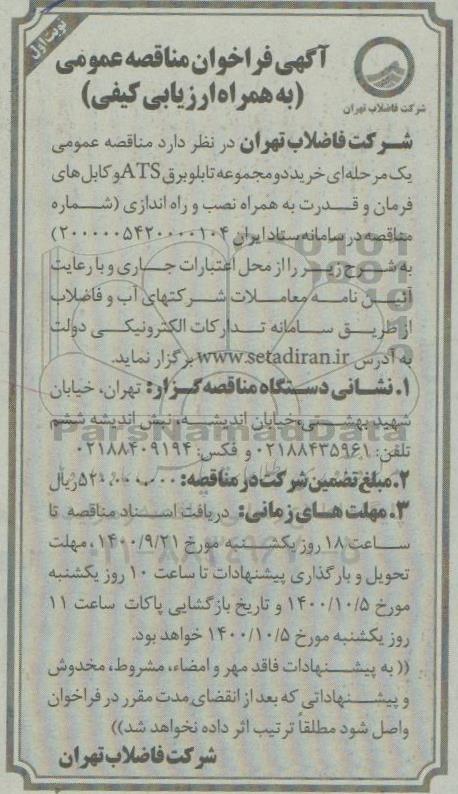 نوبت اول
شرکت فاضلاب تهران
آگهی فراخوان مناقصه عمومی
(به همراه ارزیابی کیفی)
شرکت فاضلاب تهران در نظر دارد مناقصه عمومی
یک مرحله‌ای خرید دو مجموعه تابلو برق ATS و کابل های
فرمان و قدرت به همراه نصب و راه اندازی (شماره
مناقصه در سامانه ستاد ایران ۲۰۰۰۰۰۵۴۲۰۰۰۰۱۰۴)
به شرح زیر را از محل اعتبارات جاری و با رعایت
آئین نامه معاملات شرکتهای آب و فاضلاب
از طریق سامانه تدارکات الکترونیکی دولت
به آدرس www.setadiran.ir برگزار نماید.
۱. نشانی دستگاه مناقصه گزار: تهران، خیابان
شهید بهشتی، خیابان اندیشه، نبش اندیشه ششم
تلفن: ۰۲۱۸۸۴۳۵۹۶۱ و فکس: ۰۲۱۸۸۴۰۹۱۹۴
ParsNamadData
۲. مبلغ تضمین شرکت در مناقصه: ریال
۳. مهلت های زمانی: دریافت اسناد مناقصه تا
ساعت ۱۸ روز یکشنبه مورخ ۱۴۰۰/۹/۲۱، مهلت
تحویل و بارگذاری پیشنهادات تا ساعت ۱۰ روز یکشنبه
مورخ ۱۴۰۰/۱۰/۵ و تاریخ بازگشایی پاکات ساعت ۱۱
روز یکشنبه مورخ ۱۴۰۰/۱۰/۵ خواهد بود.
(( به پیشنهادات فاقد مهر و امضاء، مشروط، مخدوش
و پیشنهاداتی که بعد از انقضای مدت مقرر در فراخوان
واصل شود مطلقاً ترتیب اثر داده نخواهد شد))
شرکت فاضلاب تهران